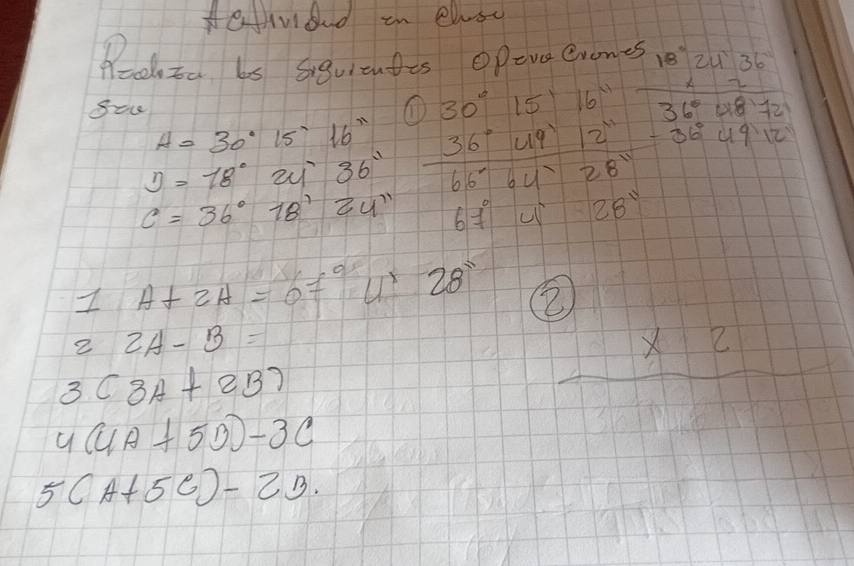 Actividad en clase
Realiza los siguientes operaciones
Sea
A = 30° 15' 16"
B = 18° 24' 36"
C = 36° 18' 24"
① 30° 15' 16"
36° 49' 12"
66° 64' 28"
67° 4' 28"
18° 24' 36
x 2
36° 48' 72
- 36° 49' 12"
1 A + 2A = 67° 4' 28"
2 2A - B =
3 (3A + 2B)
4 (4A + 5B) - 3C
5 (A + 5C) - 2B.
②
x 2